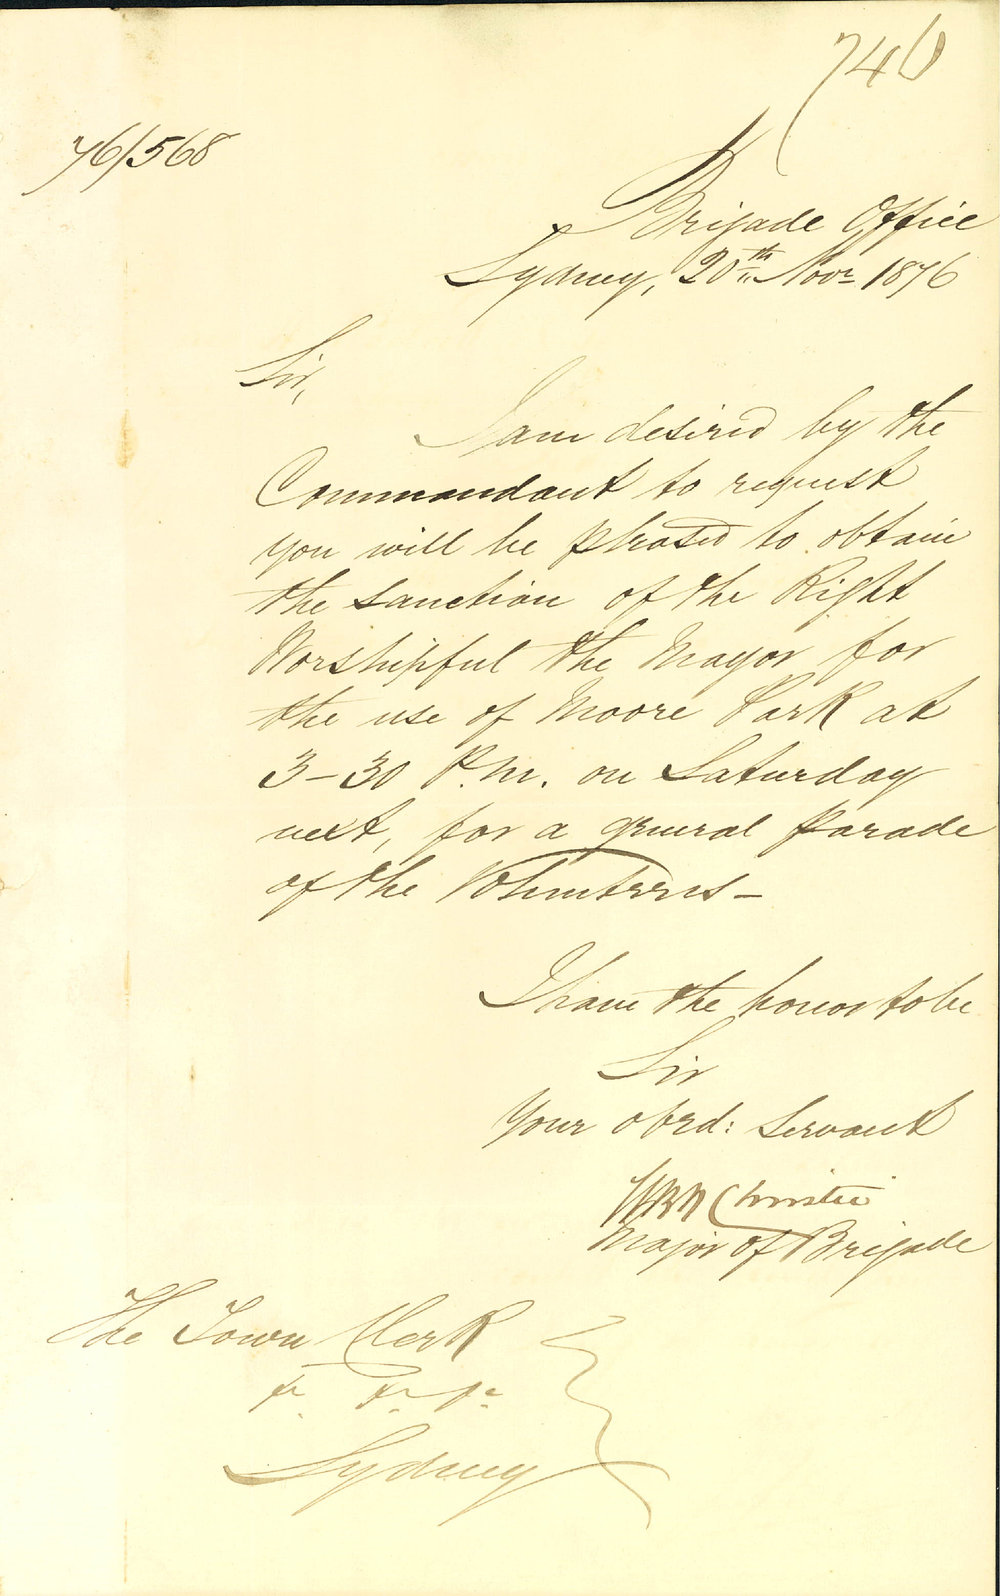 746
76/568
Brigade Office
Sydney, 20th Novr 1876
Sir,
I am desired by the
Commandant to request
you will be pleased to obtain
the sanction of the Right
Worshipful the Mayor for
the use of Moore Park at
3-30 P.M. on Saturday
next, for a general Parade
of the Volunteers -
I have the honor to be
Sir
Your obed: Servant
Christie
Major of Brigade
The Town Clerk
Sydney